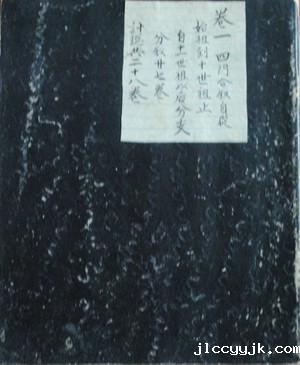 卷一 四門合叙自從
始祖到十世祖止
自十一世祖以后分支
分叙廿七卷
計班共二十八卷
www.jlccyyjk.com